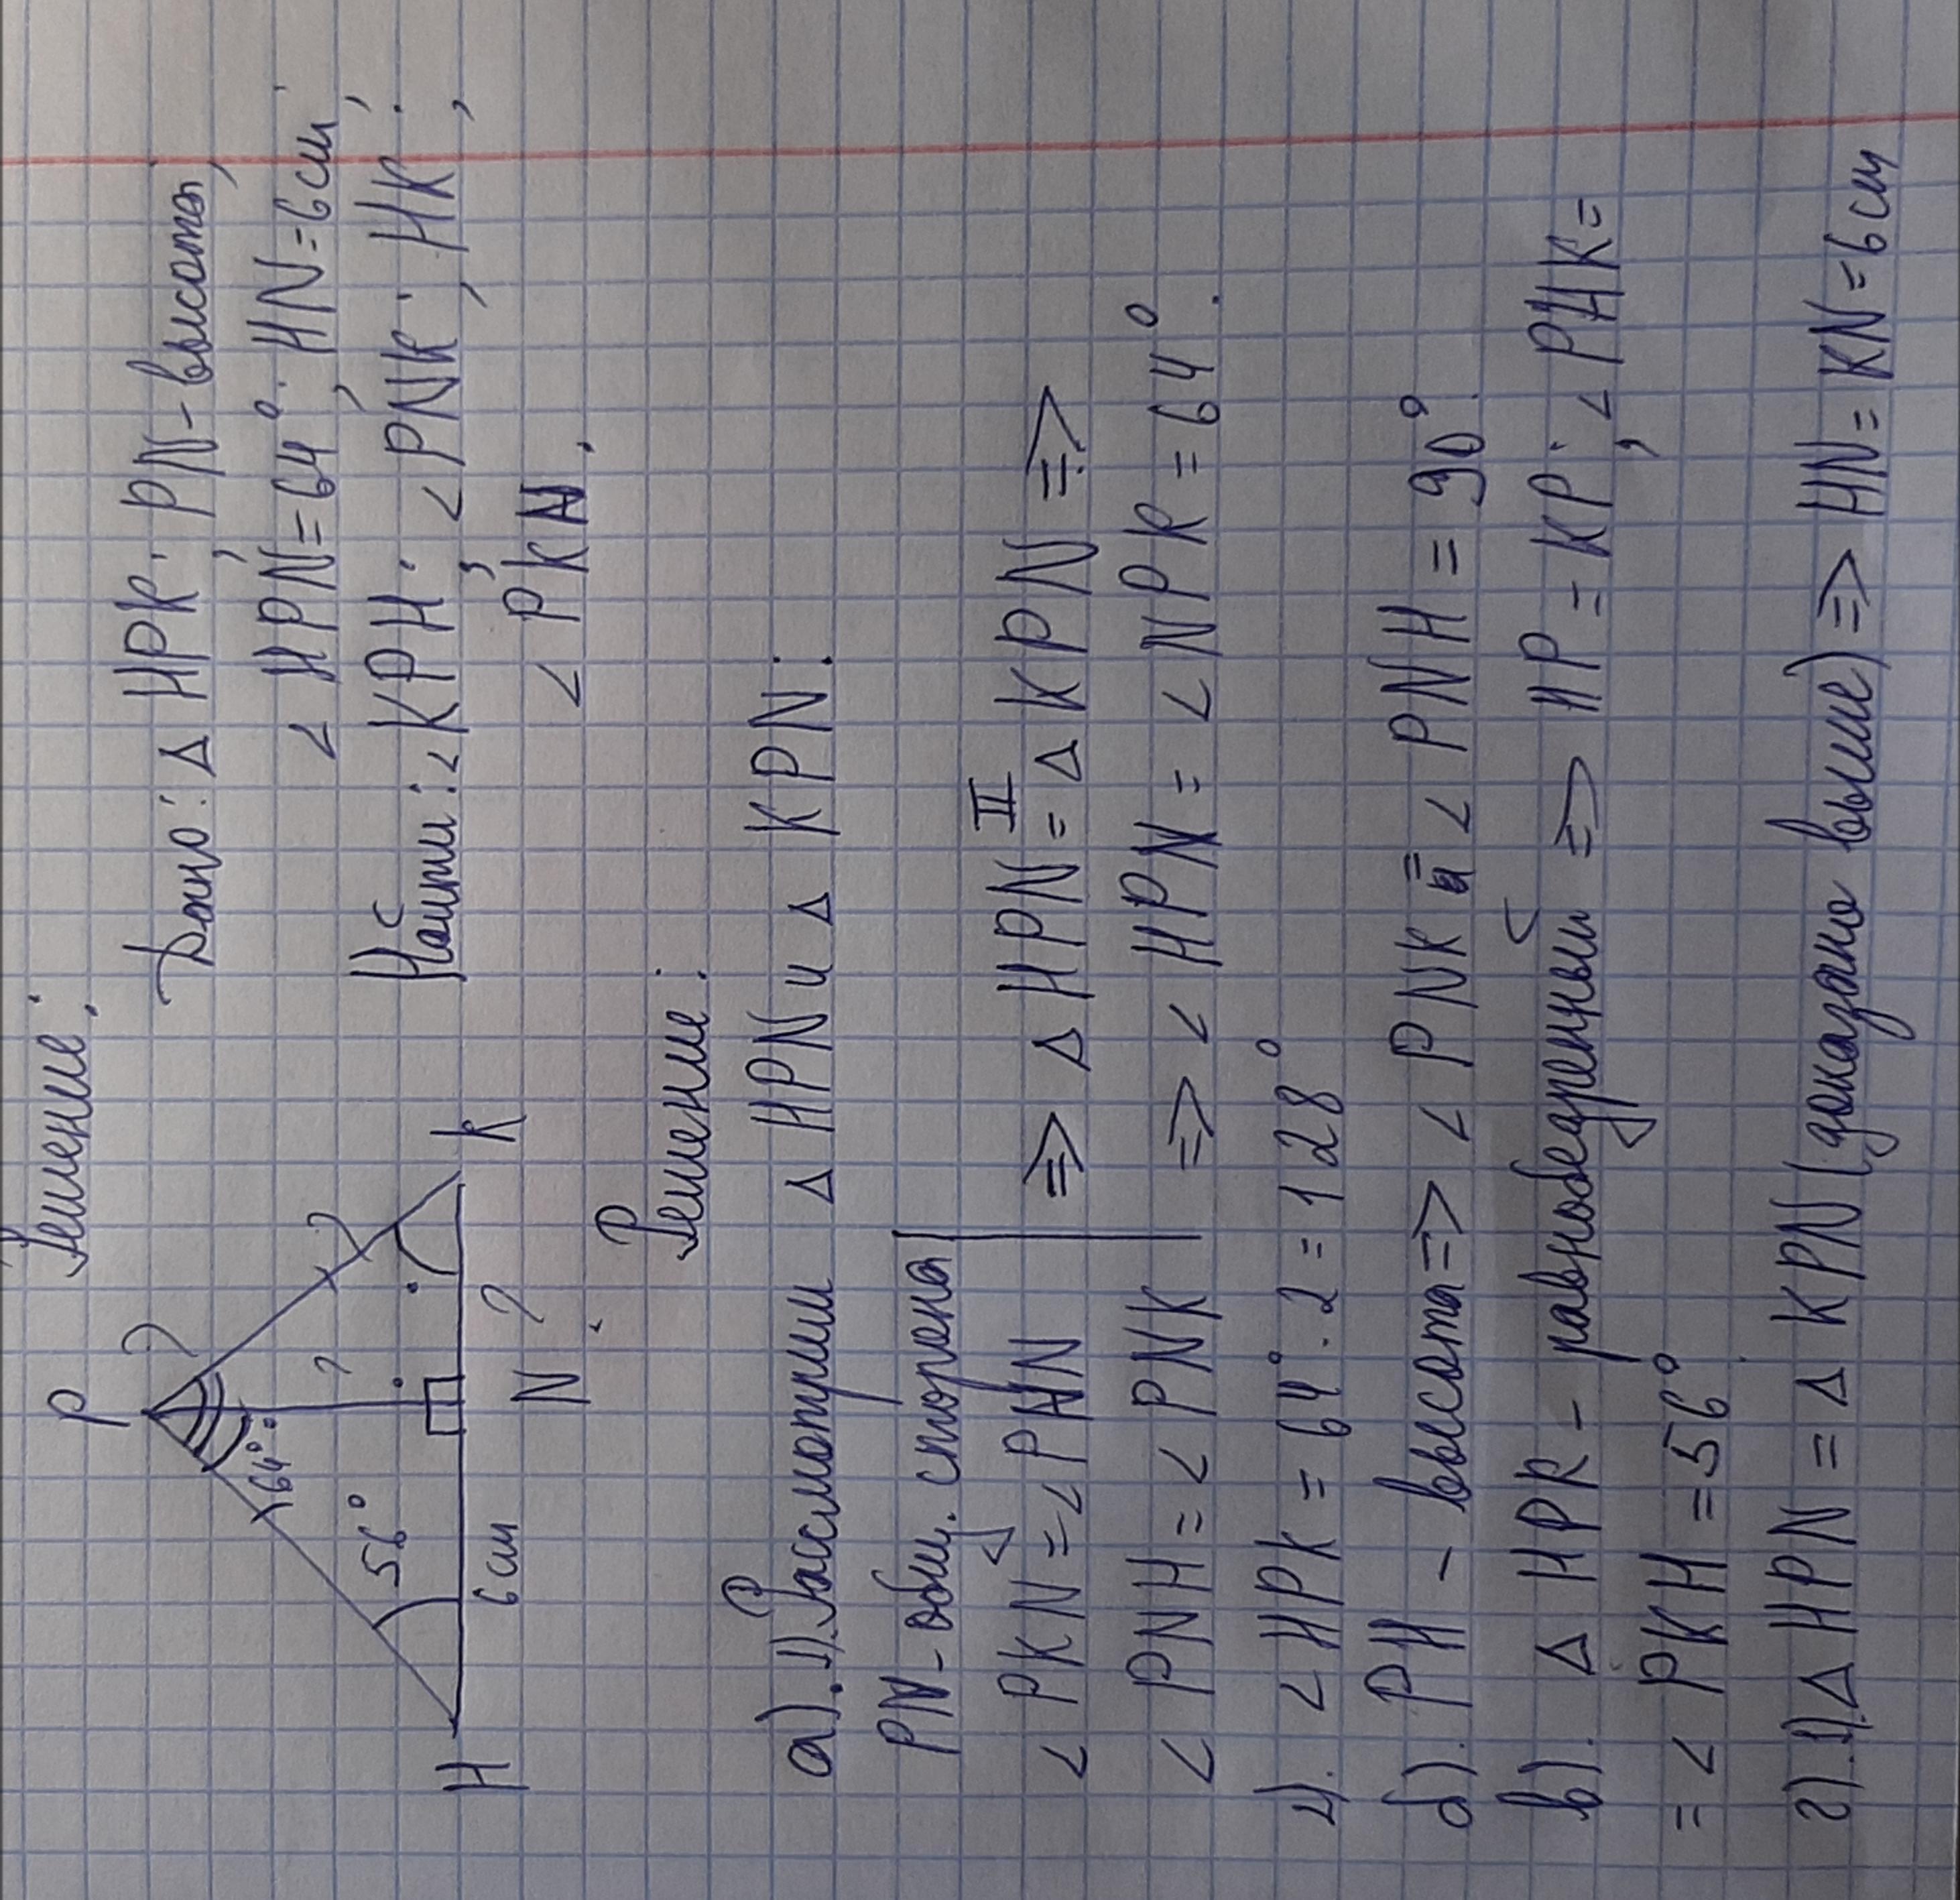 Решение:
Дано: △ HPK; PN - высота;
∠ HPN = 64°; HN = 6 см;
Найти: ∠ KPH; ∠ PNK; HK;
∠ PKN.
P
?
64°
?
?
56°
H
6 см
N
?
K
Решение:
а). 1). Рассмотрим △ HPN и △ KPN:
PN - общ. сторона
∠ PKN = ∠ PHN => △ HPN = △ KPN =>
II
∠ PNH = ∠ PNK => ∠ HPN = ∠ NPK = 64°.
2). ∠ HPK = 64° · 2 = 128°
б). PH - высота => ∠ PNK = ∠ PNH = 90°
в). △ HPK - равнобедренный => HP = KP; ∠ PHK =
= ∠ PKH = 56°
г). 1). △ HPN = △ KPN (доказано выше) => HN = KN = 6 см